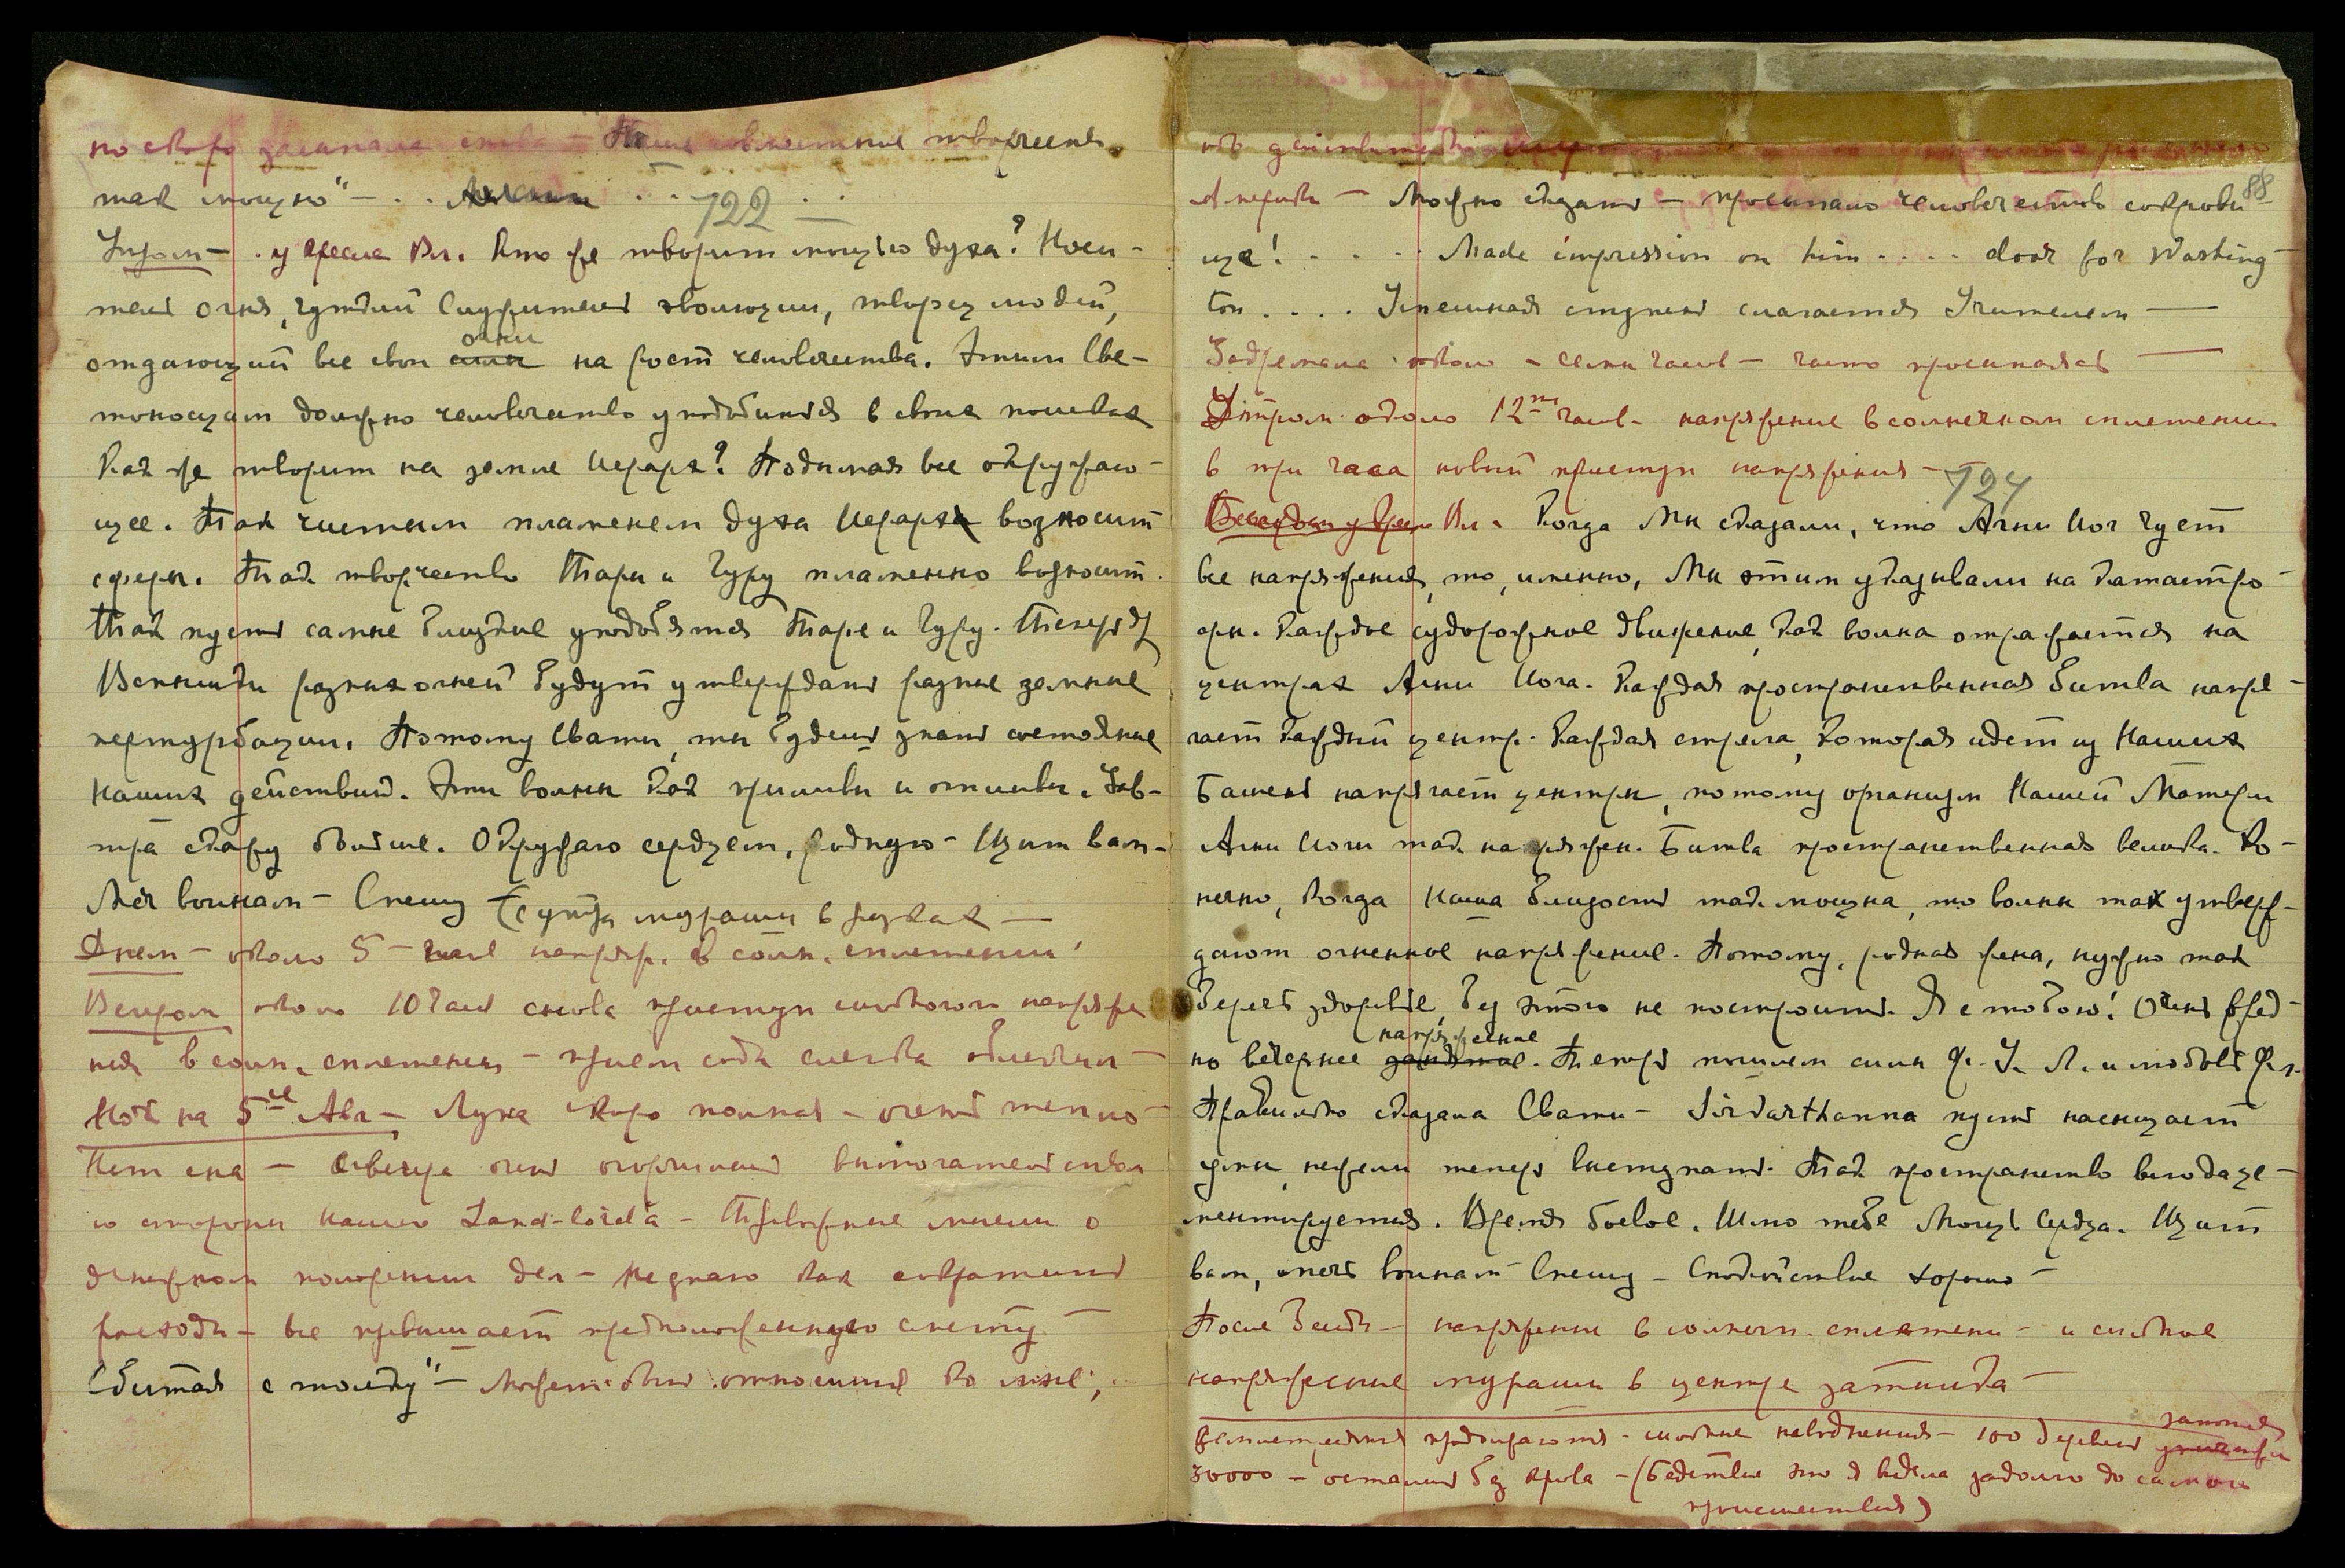 но скоро засыпала снова — Наше совместное творчество
так мощно" — . . 
722
Утром — у кресла Вл. Кто же творит мощью духа? Носи-
тель огня, чуткий Служитель эволюции, творец людей,
огни
отдающий все свои силы на рост человечества. Этим Све-
тоносцам должно человечество уподобиться в своих поисках
Как же творит на земле Иерарх? Поднимая все окружаю-
щее. Так чистым пламенем духа Иерарх возносит
сферы. Так творчество Тары и Гуру пламенно возносит.
Так пусть самые близкие уподобятся Таре и Гуру. Теперь
Вспышки разных огней будут утверждать разные земные
пертурбации. Потому Свати, ты будешь знать состояние
наших действий. Эти волны как приливы и отливы. Зав-
тра скажу больше. Окружаю сердцем, родную — Щит вам —
Меч воинам — Спешу — (с утра мураши в руках —
Днем — около 5 — час напряж. в солн. сплетении
Вечером около 10 час снова приступ сильного напряже
ния в солн. сплетении — прием соды слегка облегчил —
Ночь на 5ое Авг — Луна скоро полная — очень тепло —
Нет сна — очень огорчилась вымогательством
со стороны нашего Land-lord'а — Тревожные мысли о
денежном положении дел — Не знаю как сократить
расходы — все превышает предположенную смету —
Сбитая с толку" — Может быть относится ко мне;
88
Америка — Можно сказать — просыпало человечество сокрови-
ще! . . . . Made impression on him . . . . door for Washing-
ton . . . . Успешная ступень слагается Учителем —
Задремала около — семи часов — часто просыпаясь —
Утром около 12ти часов. напряжение в солнечном сплетении
в три часа новый приступ напряжения —
724
Беседа у кресла Вл. Когда Мы сказали, что Агни Йог чует
все напряжения, то, именно, Мы этим указывали на катастро-
фы. Каждое судорожное движение, как волна отражается на
центрах Агни Йога. Каждая пространственная битва напря-
гает каждый центр. Каждая стрела, которая идет из Наших
Башень напрягает центры, потому организм Нашей Матери
Агни Йоги так напряжен. Битва пространственная велика. Ко-
нечно, когда Наша близость так мощна, то волны так утверж-
дают огненное напряжение. Потому, родная жена, нужно так
беречь здоровье, без этого не построить. Я с тобою! Очень вред-
напряжение
но вечернее занятие. Теперь пошлем силы Ф. У. Л. и любовь Фл.
Правильно сказала Свати — Sirdarthanna пусть насыщает
умы, нежели теперь выступать. Так пространство благо даце-
ментируется. Время боевое. Шлю тебе Мощь Сердца. Щит
вам, меч воинам — Спешу — Спокойствие хорошо —
После Беседы — напряжение в солнечн. сплетении — и сильное
напряжение мураши в центре затылка —
Землетрясения продолжаются — сильные наводнения — 100 деревень уничтожены
затопл
30000 — остались без крова — (Бедствие это я видела задолго до самого
происшествия)